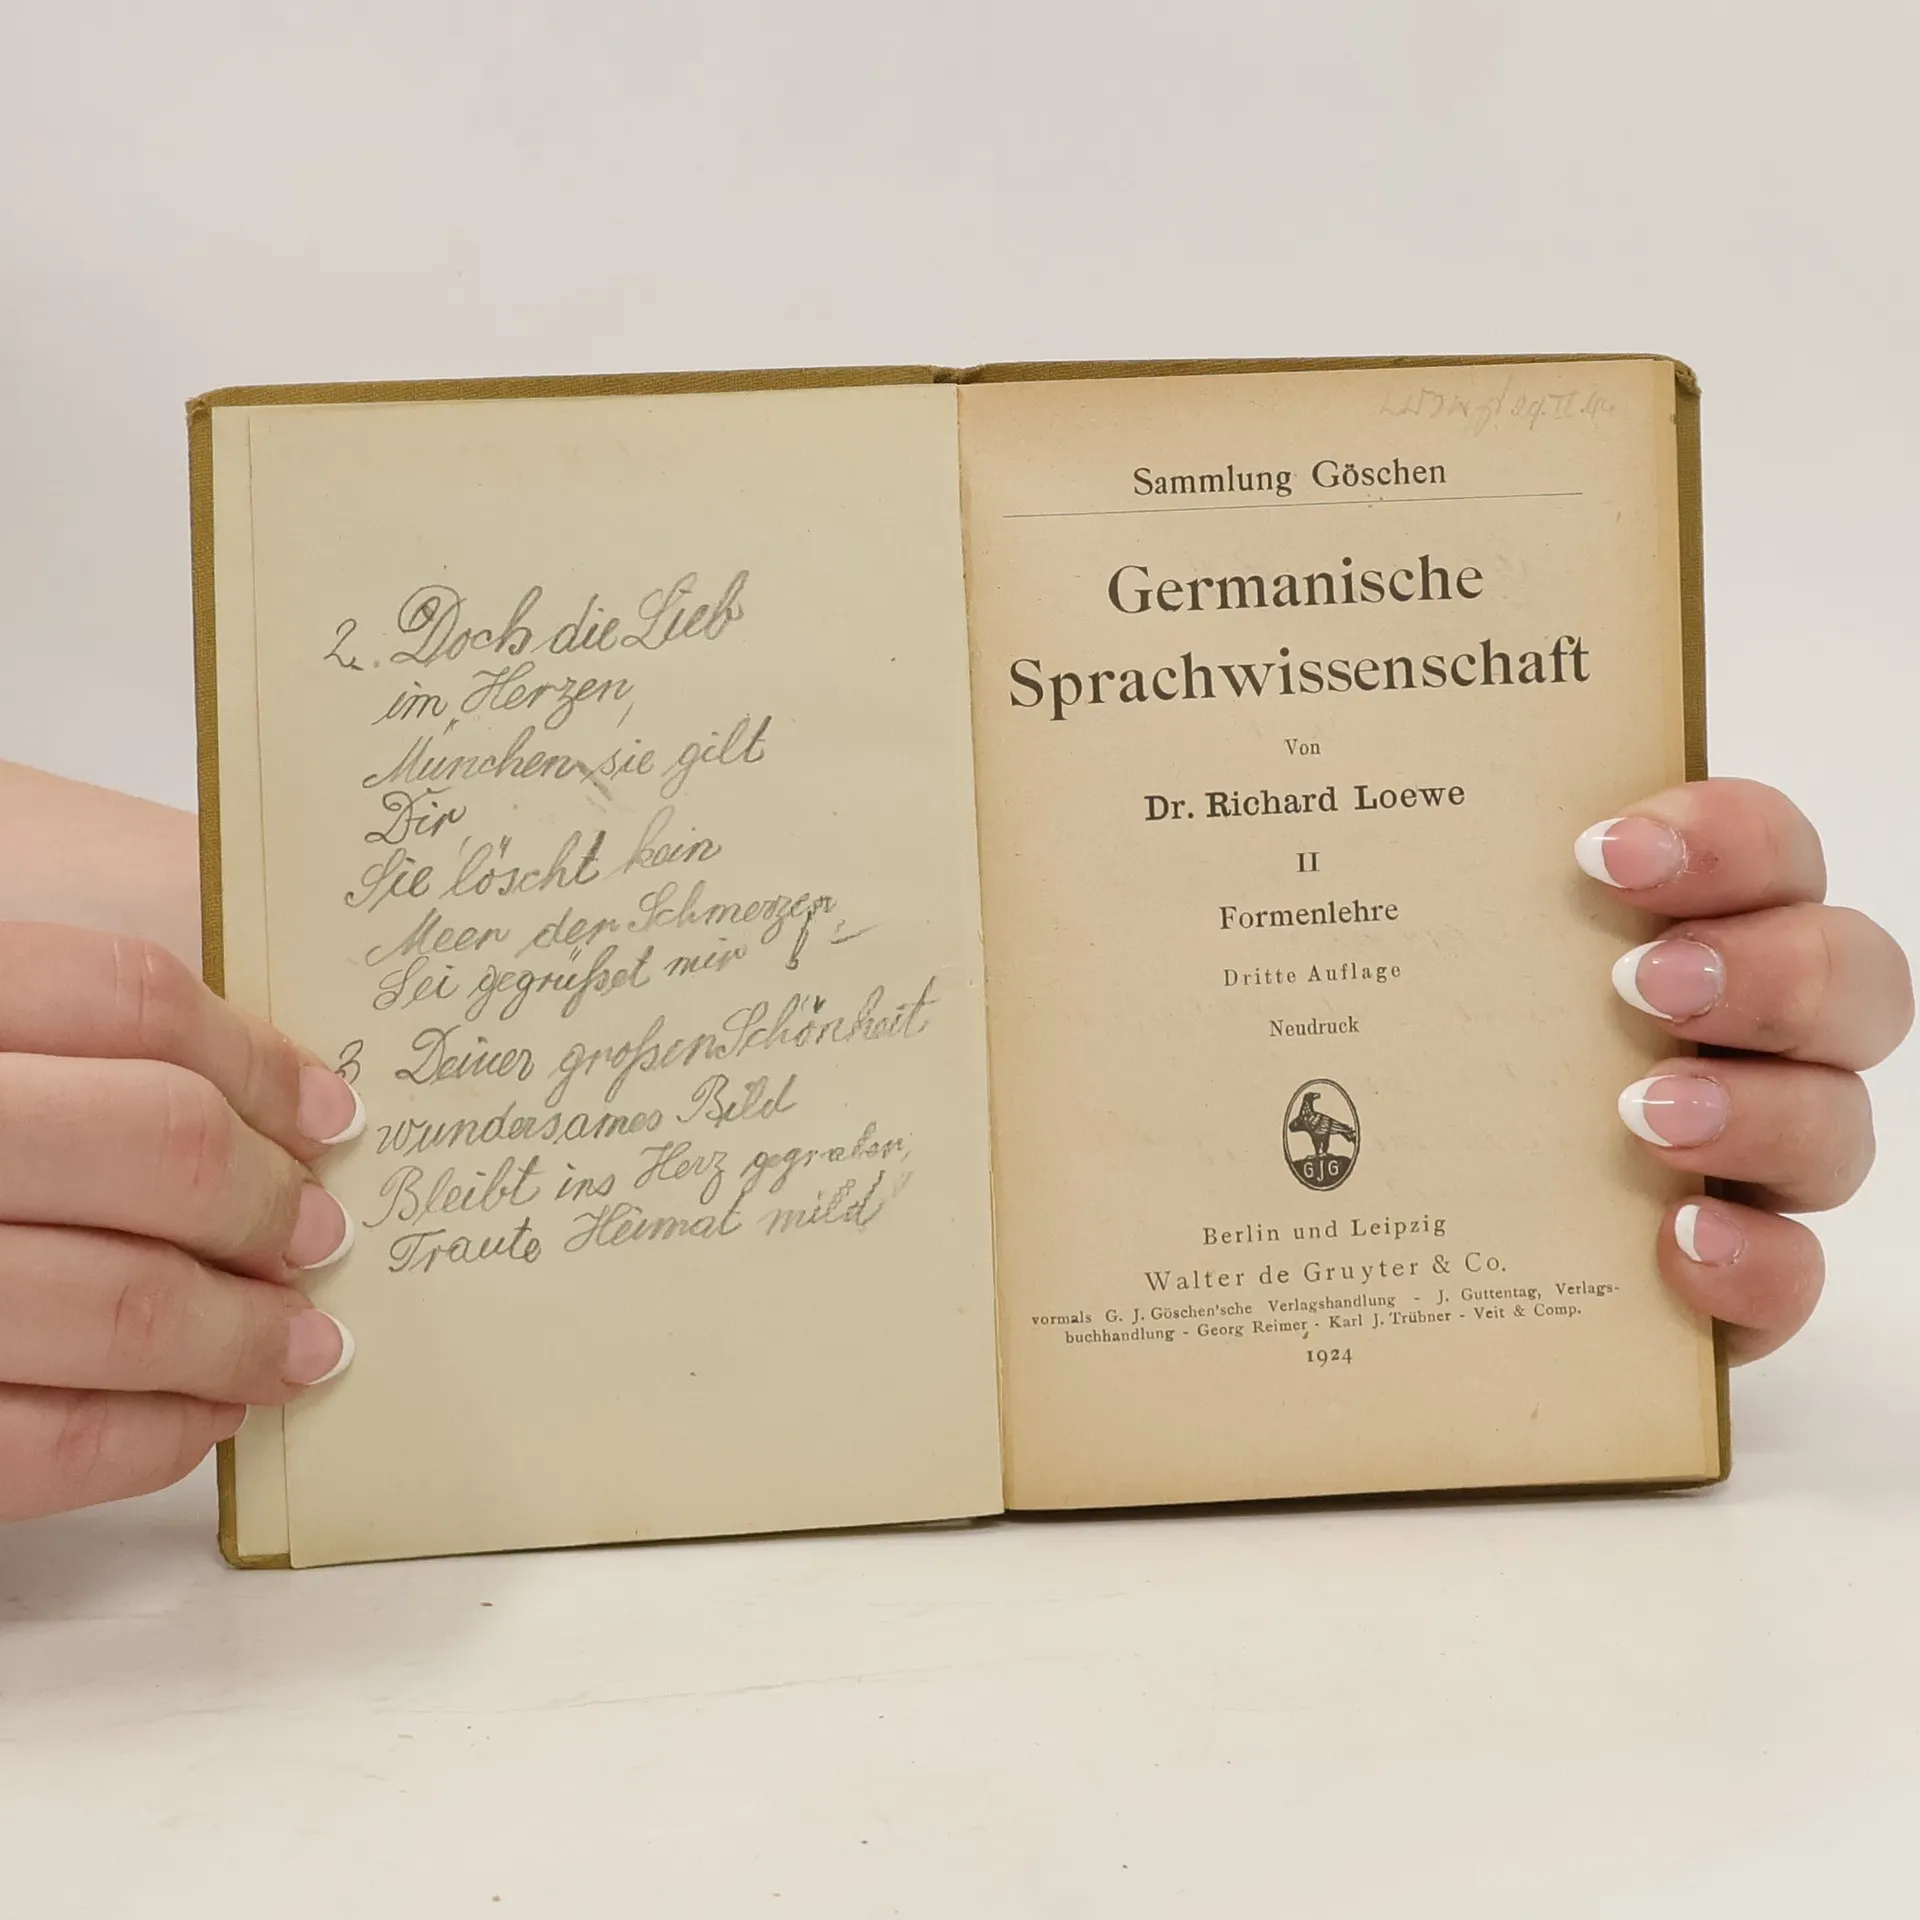 2. Doch die Lieb
im Herzen,
München sie gilt
Dir,
Sie löscht kein
Meer der Schmerzen,
Sei gegrüßet mir!
3 Deiner großen Schönheit
wundersames Bild
Bleibt ins Herz gegraben,
Traute Heimat mild
29.II.44
Sammlung Göschen
Germanische
Sprachwissenschaft
Von
Dr. Richard Loewe
II
Formenlehre
Dritte Auflage
Neudruck
GJG
Berlin und Leipzig
Walter de Gruyter & Co.
vormals G. J. Göschen'sche Verlagshandlung - J. Guttentag, Verlags-
buchhandlung - Georg Reimer - Karl J. Trübner - Veit & Comp.
1924